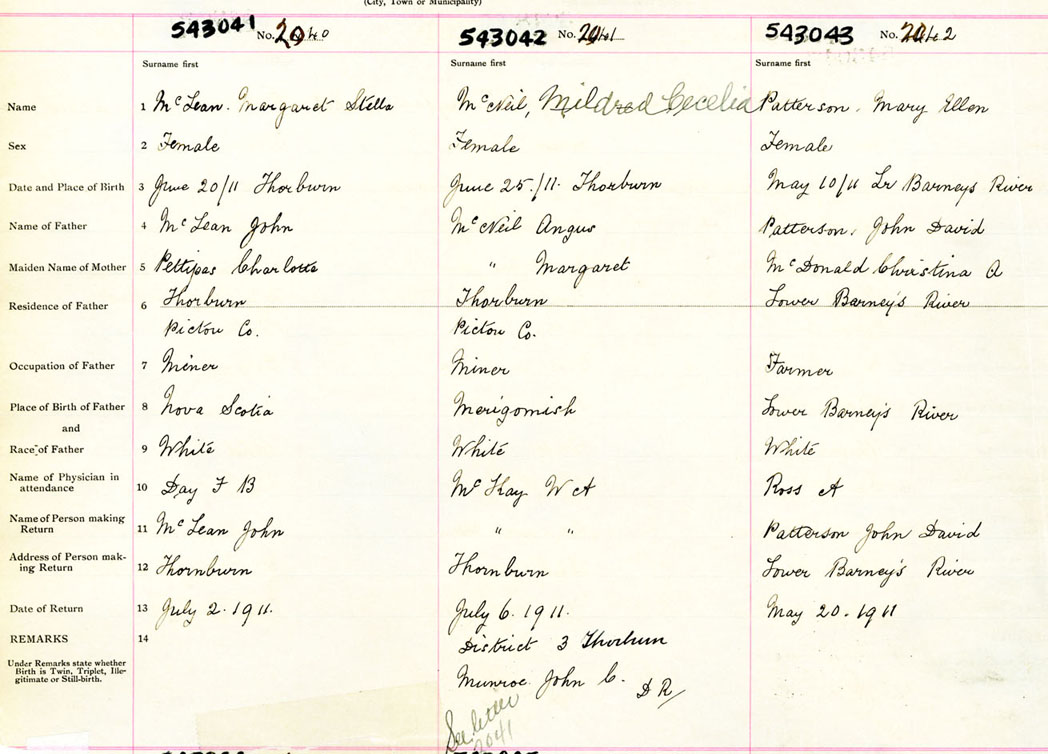 (City, Town or Municipality)
543041 No. 2040 543042 No. 2041 543043 No. 2042
Surname first Surname first Surname first
Name 1 McLean. Margaret Stella McNeil, Mildred Cecelia Patterson. Mary Ellen
Sex 2 Female Female Female
Date and Place of Birth 3 June 20/11 Thorburn June 25./11. Thorburn May 10/11 Lr Barneys River
Name of Father 4 McLean John McNeil Angus Patterson. John David
Maiden Name of Mother 5 Pettipas Charlotte " Margaret McDonald Christina A
Residence of Father 6 Thorburn Thorburn Lower Barney's River
Pictou Co. Pictou Co.
Occupation of Father 7 Miner Miner Farmer
Place of Birth of Father 8 Nova Scotia Merigomish Lower Barney's River
and
Race of Father 9 White White White
Name of Physician in
attendance 10 Day F B McKay W A Ross A
Name of Person making
Return 11 McLean John " " Patterson John David
Address of Person mak-
ing Return 12 Thornburn Thornburn Lower Barney's River
Date of Return 13 July 2. 1911. July 6. 1911. May 20. 1911
REMARKS 14 District 3 Thorburn
Under Remarks state whether
Birth is Twin, Triplet, Ille-
gitimate or Still-birth.
Munroe John C. D R/
See letter
2041